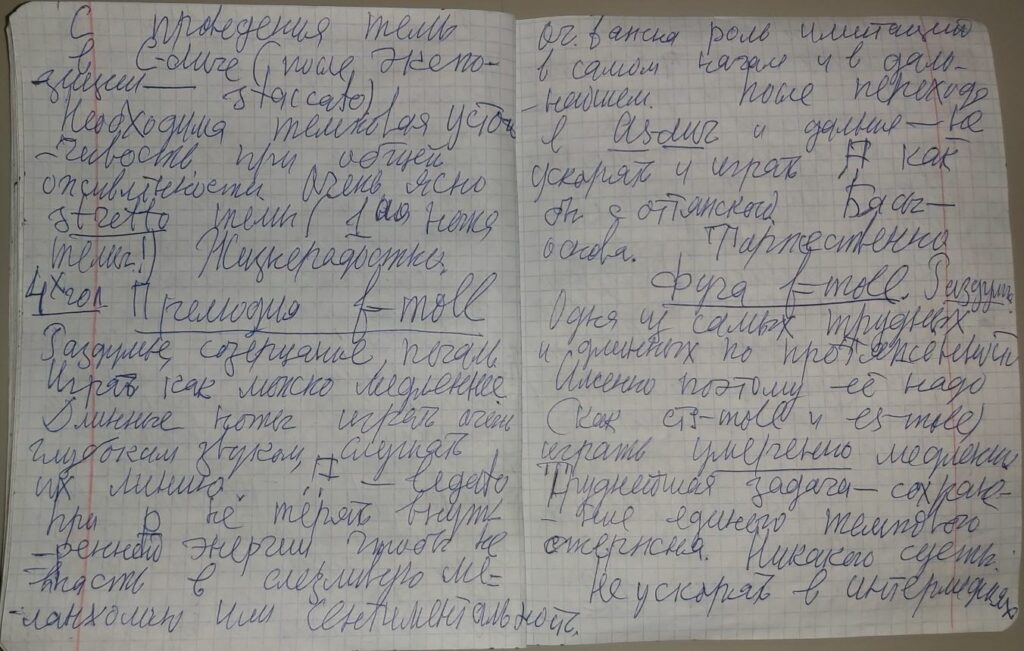 С проведения темы
в C-dur'е (после экспо-
зиции — staccato)
Необходима темповая устой-
-чивость при общей
оживлённости. Очень ясно
stretto темы (1ая нота
темы!) Жизнерадостно.
4х гол Прелюдия f-moll
Раздумье, созерцание, печаль.
Играть как можно медленнее
Длинные ноты играть очень
глубоким звуком, слушать
их линию. – legato
при p не терять внут-
-ренней энергии чтобы не
впасть в слезливую ме-
-ланхолию или сентиментальность.
Оч. важна роль имитаций
в самом начале и в даль-
-нейшем. После перехода
в As-dur и дальше — не
ускорять и играть как
бы с оттяжкой. Басы —
основа. Торжественно
Фуга f-moll. Раздумье
Одна из самых трудных
и длинных по протяжённости
Именно поэтому её надо
(как cis-moll и es-moll)
играть умеренно медленно
Труднейшая задача — сохране-
-ние единого темпового
стержня. Никакого суеты.
Не ускорять в интермедиях